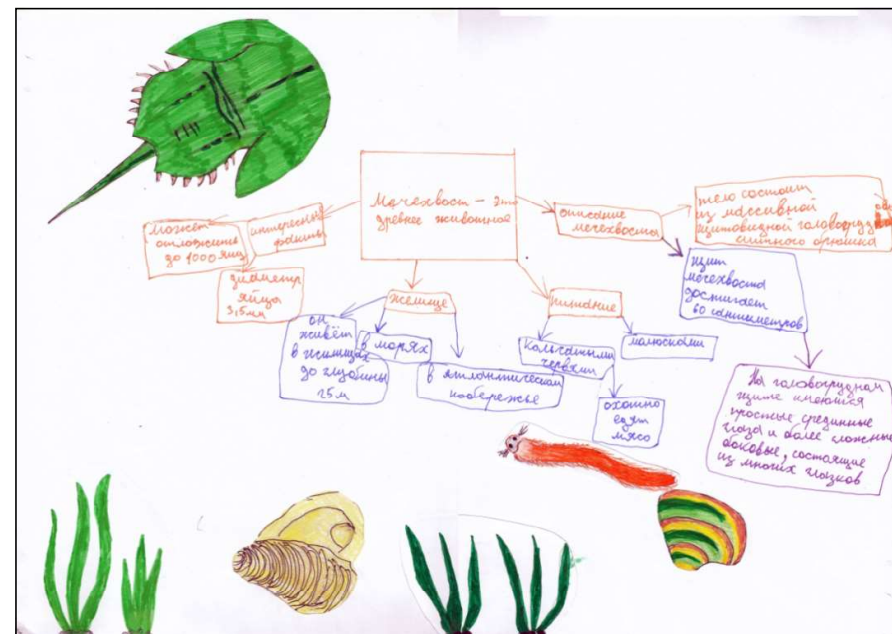 Мечехвост – это
древнее животное
интересные
факты
может
отложить
до 1000 яиц
диаметр
яйца
3,5мм
жилище
он
живёт
в жилищах
до глубины
15м
в морях
в Атлантическом
побережье
питание
кольчатыми
червями
охотно
едят
мясо
малюсками
описание
мечехвоста
тело состоит
из массивной
щитовидной
спинного брюшка
щит
мечехвоста
достигает
60 сантиметров
На головогрудном
щите имеются
простые срединные
глаза и более сложные
боковые, состоящие
из многих глазков